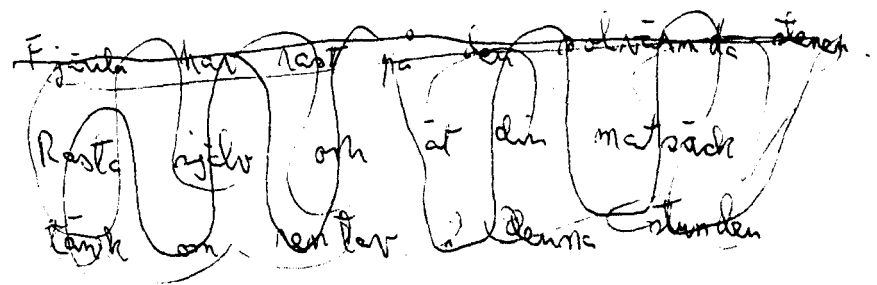 Fjäril har rast på den solvärmda stenen.
Rasta själv och ät din matsäck
tänk om rentav i denna stunden